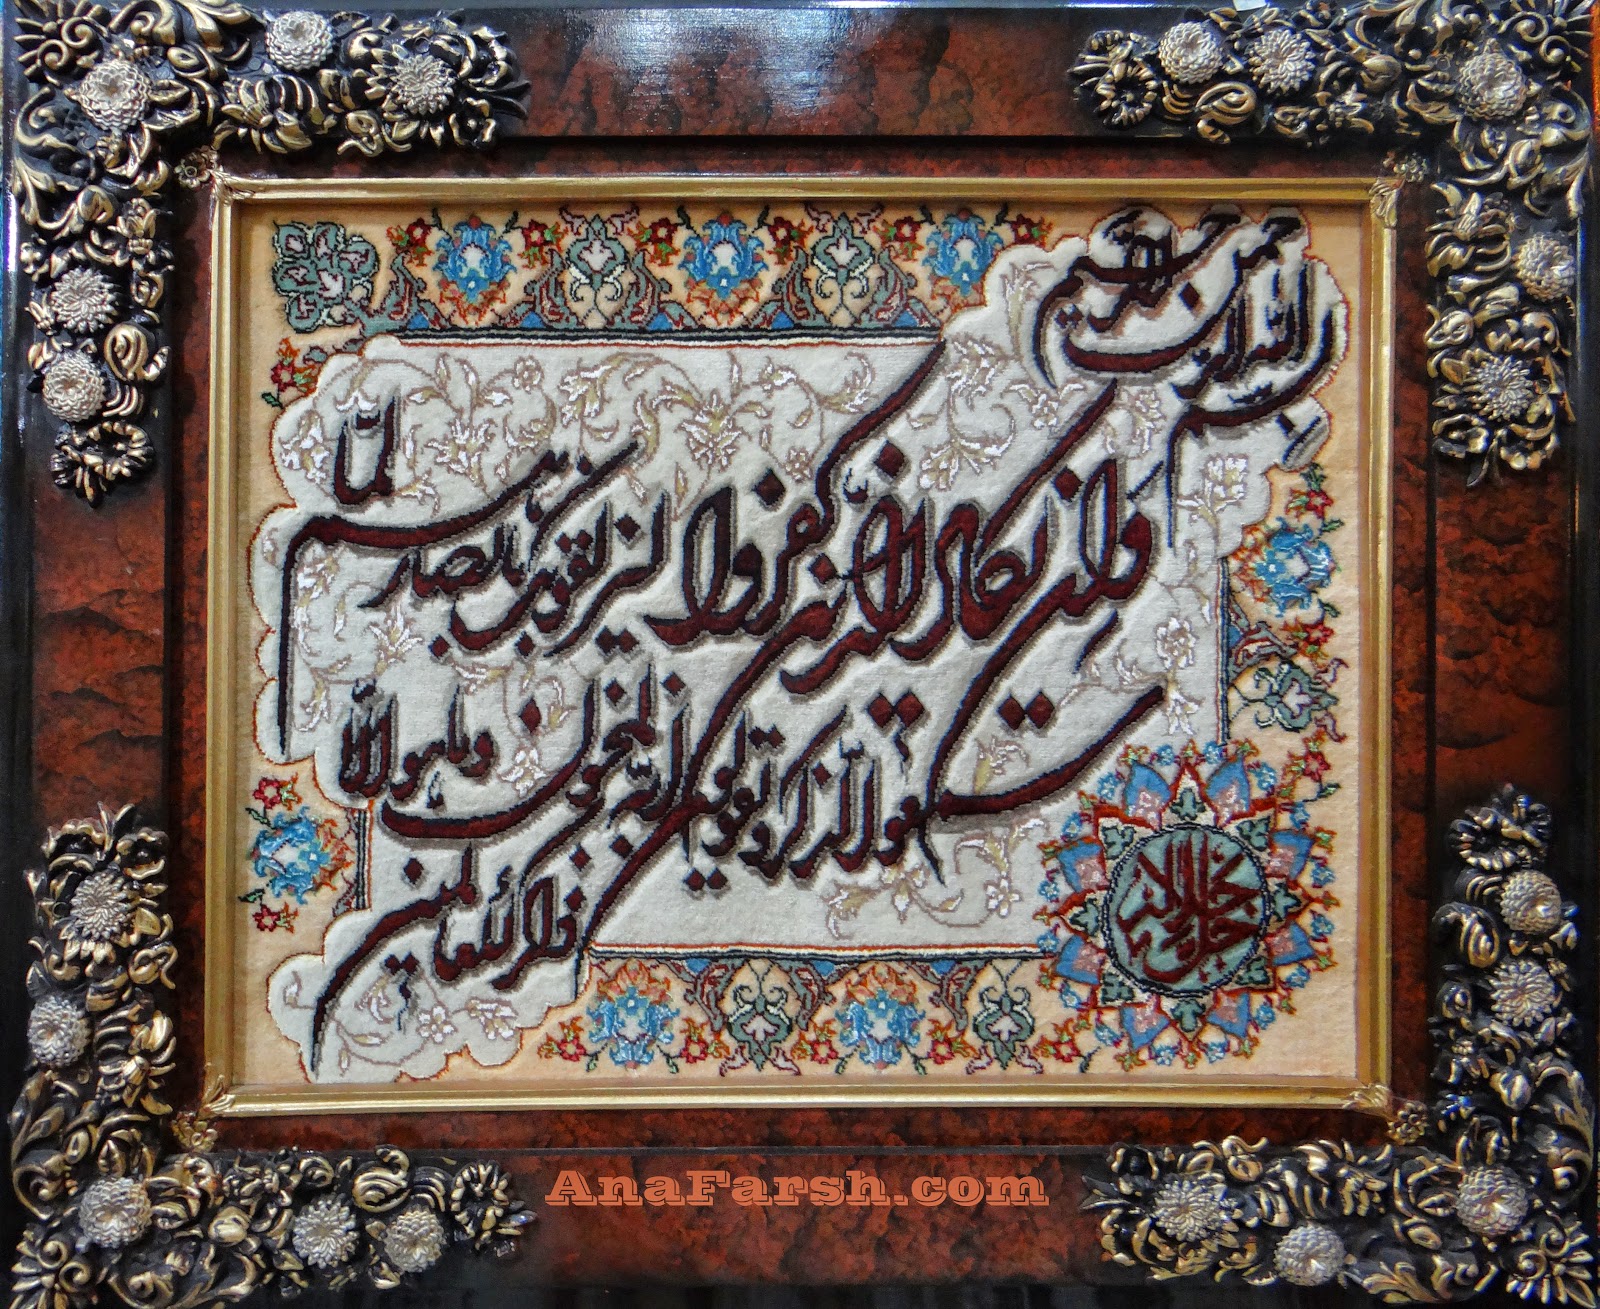 بسم الله الرحمن الرحیم
وَاِن یکاد الذین کفروا لیزلقونک بابصارهم لمّا
سمعوا الذکر و یقولون انه لمجنون وما هو الّا
ذکر للعالمین
جل جلاله
AnaFarsh.com